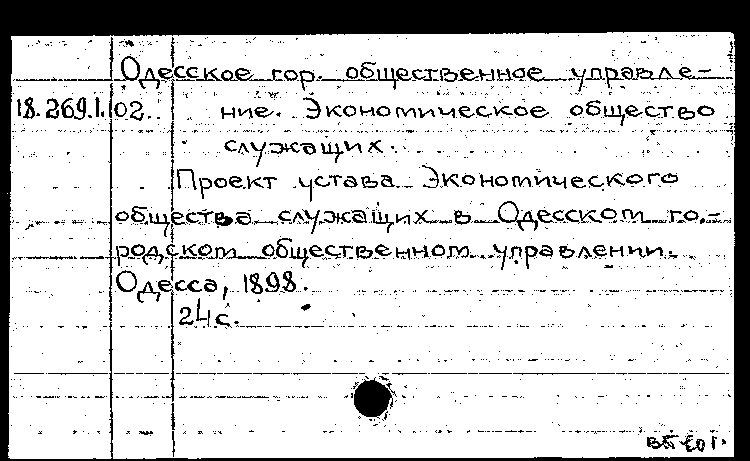 Одесское гор. общественное управле-
18.269.1.102. ние. Экономическое общество
служащих.
Проект устава Экономического
общества служащих в Одесском го-
родском общественном управлении.
Одесса, 1898.
24 с.